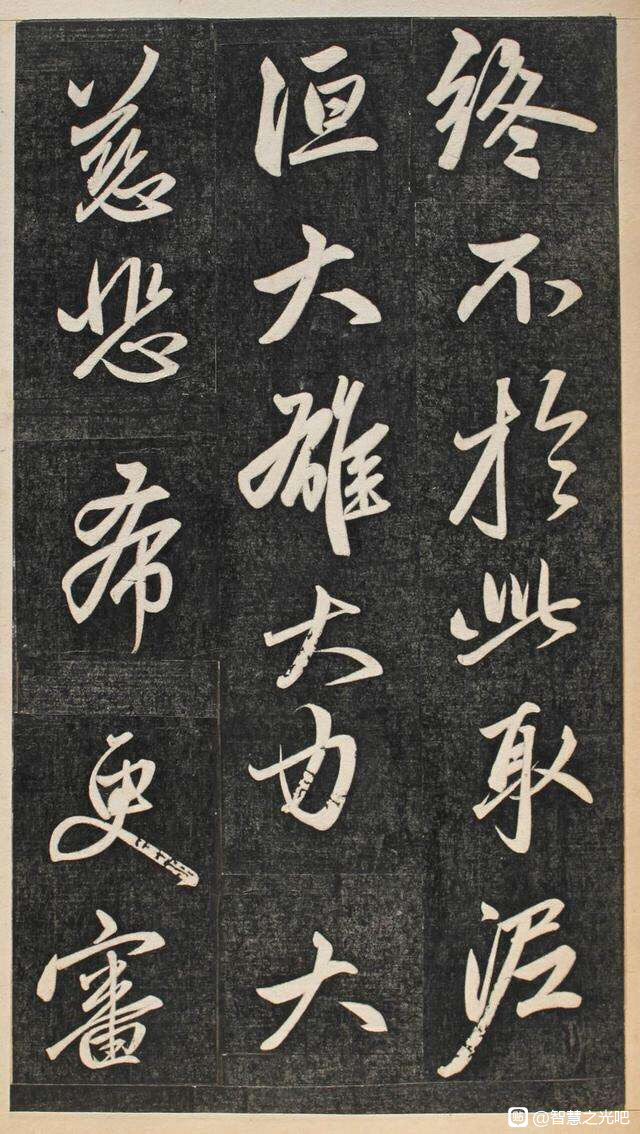 終不於此取泥
洹大雄大力大
慈悲希更審
贴 @智慧之光吧